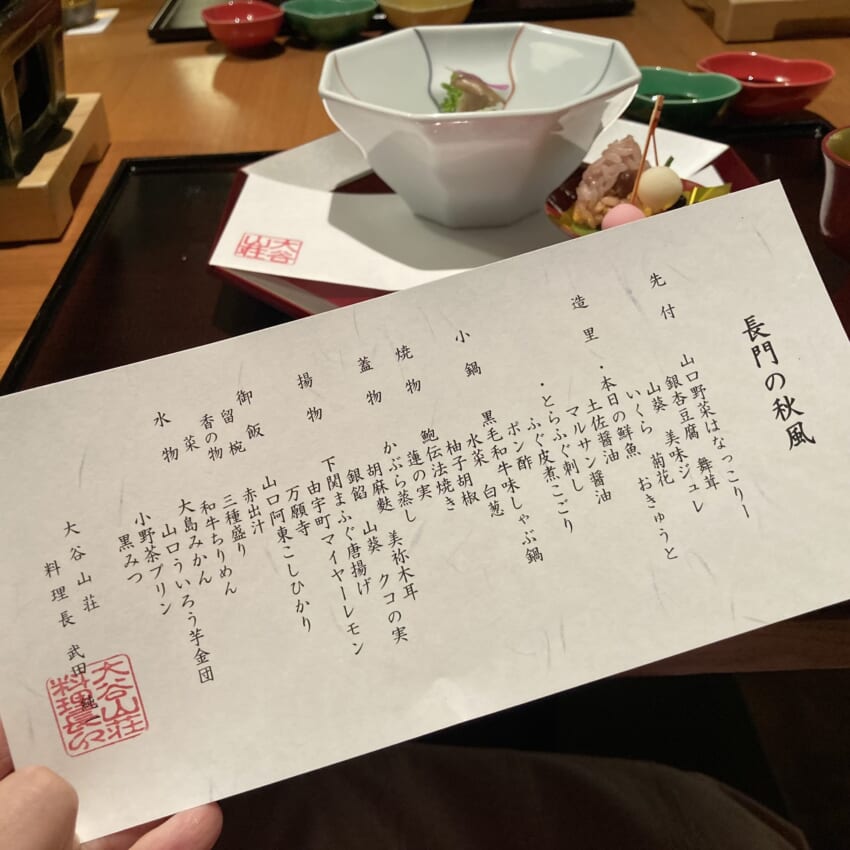 長門の秋風
先付
山口野菜はなっこりー 舞茸
銀杏豆腐 美味ジュレ
山葵 菊花 おきゅうと
いくら
造里
・本日の鮮魚
土佐醤油
マルサン醤油
・とらふぐ刺し
ふぐ皮煮こごり
ポン酢
小鍋
黒毛和牛味しゃぶ鍋
水菜 白葱
柚子胡椒
焼物
鮑伝法焼き
蓮の実
蓋物
かぶら蒸し 美祢木耳
胡麻麩 山葵 クコの実
銀餡
揚物
下関まふぐ唐揚げ
由宇町マイヤーレモン
万願寺
御飯
山口阿東こしひかり
留椀
赤出汁
香の物
三種盛り
菜
和牛ちりめん
水物
大島みかん
山口ういろう芋金団
小野茶プリン
黒みつ
大谷山荘
料理長 武田 純一
大谷山荘
料理長の印
大谷
山荘